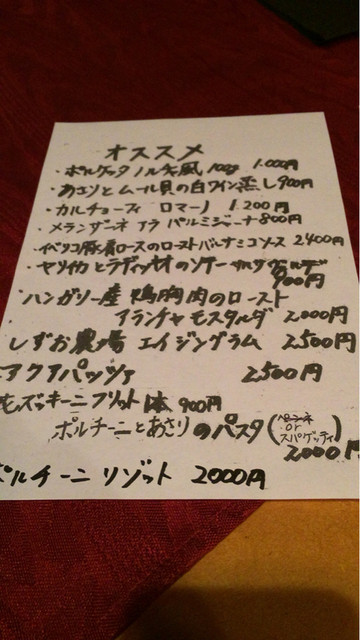 オススメ
・ポルケッタ ノルチャ風 100g 1.000円
・あさりとムール貝の白ワイン蒸し900円
・カルチョーフィ ロマーノ 1.200円
・メランザーネ アラ パルミジーナ800円
・イベリコ豚肩ロースのローストバルサミコソース 2400円
・ヤリイカとラディッキオのソテー サルサヴェルデ
900円
・ハンガリー産 鴨胸肉のロースト
アランチャ モスタルダ 2000円
しずお農場 エイジングラム 2500円
アクアパッツァ 2500円
花ズッキーニフリット 1本 900円
ポルチーニとあさりのパスタ(ペンネ
or
スパゲッティ)
2000円
ポルチーニ リゾット 2000円